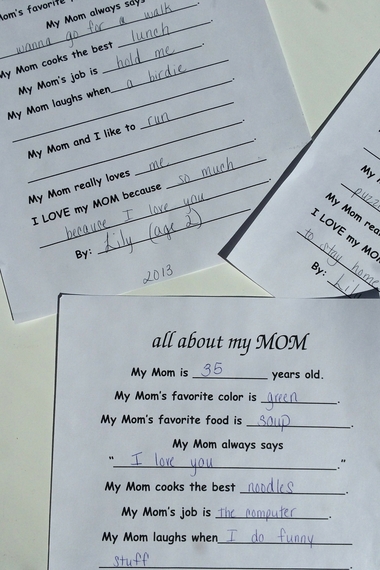 Mom's favorite
My Mom always says
wanna go for a walk
My Mom cooks the best lunch
My Mom's job is hold me.
My Mom laughs when a birdie
.
My Mom and I like to run
.
My Mom really loves me.
I LOVE my MOM because so much
because I love you.
By: Lily (age 2)
2013
My
puzz
My Mom rea
I LOVE my MOM
to stay home
By: Lil
all about my MOM
My Mom is 35 years old.
My Mom's favorite color is green.
My Mom's favorite food is soup.
My Mom always says
" I love you ."
My Mom cooks the best noodles.
My Mom's job is the computer.
My Mom laughs when I do funny
stuff.